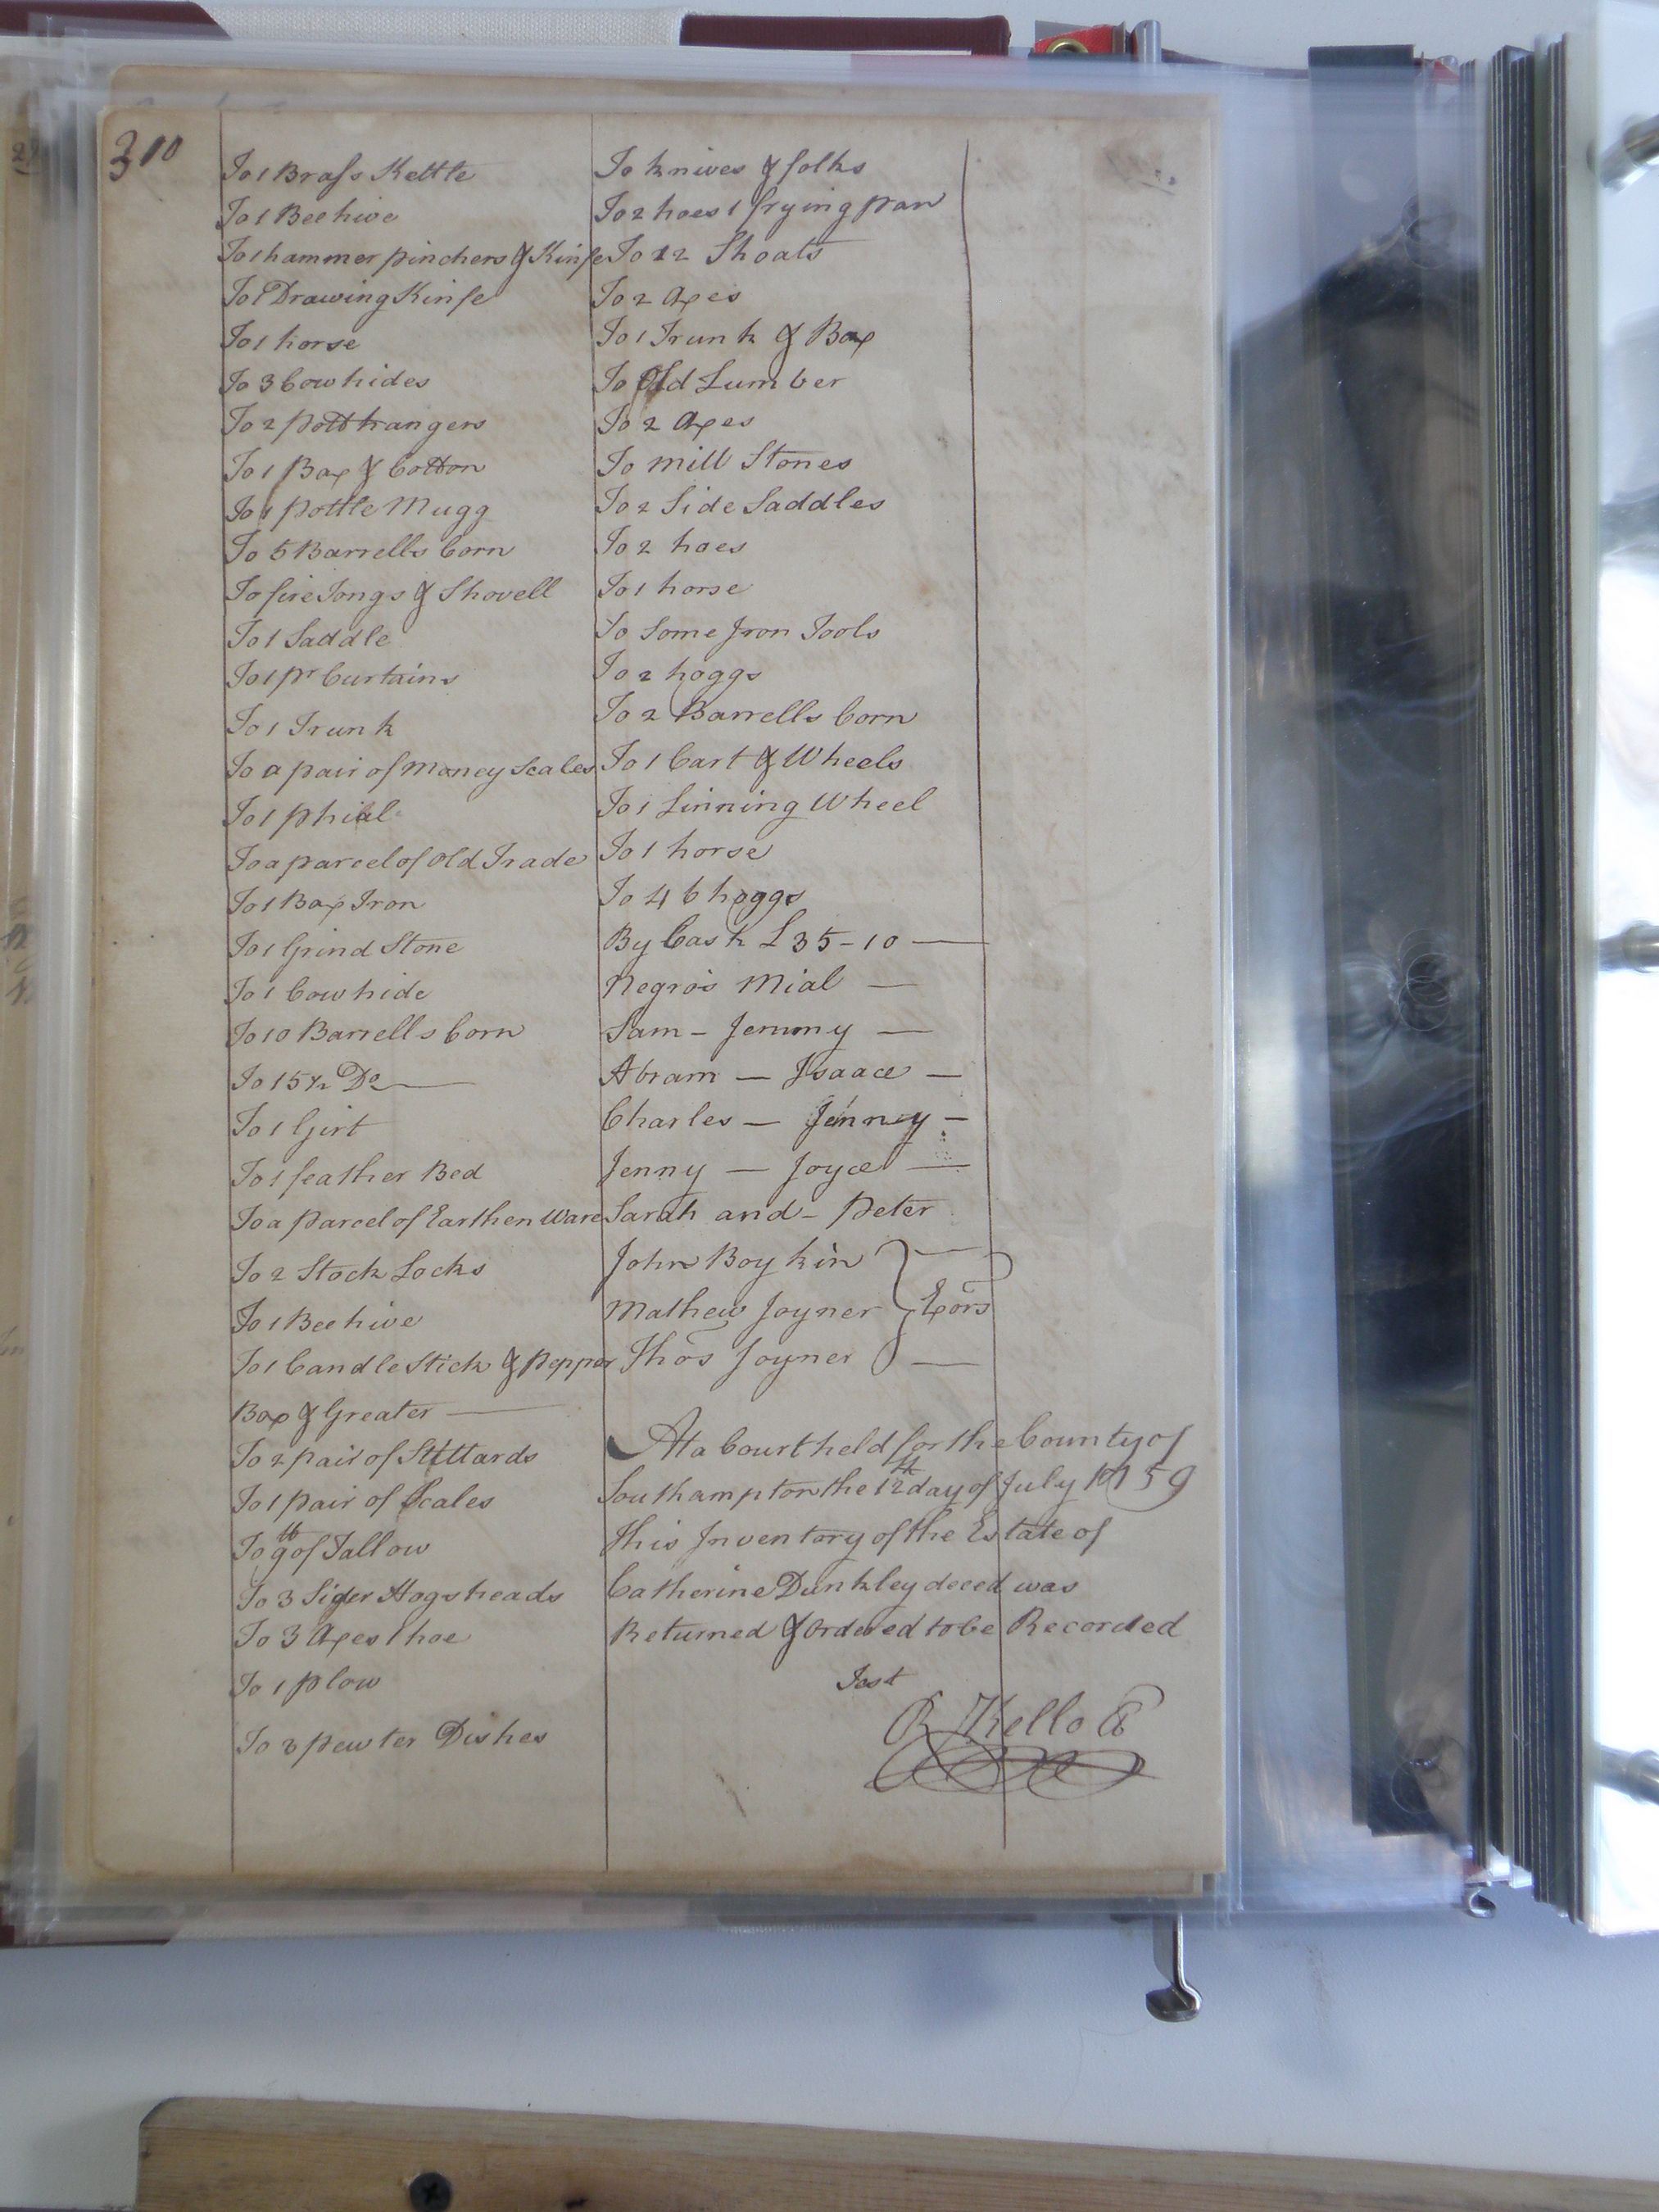 310
To 1 Brass Kettle
To 1 Bee hive
To 1 hammer pinchers & Kinfe
To 1 Drawing Kinfe
To 1 horse
To 3 Cow hides
To 2 pott hangers
To 1 Box & Cotton
To 1 pottle Mugg
To 5 Barrells Corn
To fire Tongs & Shovell
To 1 Saddle
To 1 pr Curtains
To 1 Trunk
To a pair of Money Scales
To 1 phial
To a parcel of Old Trade
To 1 Box Iron
To 1 Grind Stone
To 1 Cow hide
To 10 Barrells Corn
To 15 ½ Do
To 1 Girt
To 1 feather Bed
To a parcel of Earthen Ware
To 2 Stock Locks
To 1 Bee hive
To 1 Candle Stick & Pepper
Box & Greater
To 2 pair of Stittards
To 1 pair of Scales
To 9 lb of Tallow
To 3 Sider Hogsheads
To 3 Axes 1 hoe
To 1 plow
To 3 pewter Dishes
To knives & folks
To 2 hoes 1 frying pan
To 12 Shoats
To 2 Axes
To 1 Trunk & Box
To Old Lumber
To 2 Axes
To Mill Stones
To 2 Side Saddles
To 2 hoes
To 1 horse
To Some Iron Tools
To 2 hoggs
To 2 Barrells Corn
To 1 Cart & Wheels
To 1 Linning Wheel
To 1 horse
To 46 hoggs
By Cash £35-10 —
Negros Mial —
Sam - Jemmy —
Abram — Isaace —
Charles — Jenney —
Jenny — Joyce —
Sarah and - Peter
John Boykin
Mathew Joyner } Exors
Thos Joyner
At a Court held for the County of
Southampton the 12th day of July 1759
This Inventory of the Estate of
Catherine Dunkley deced was
Returned & Ordered to be Recorded
Test
R Kello